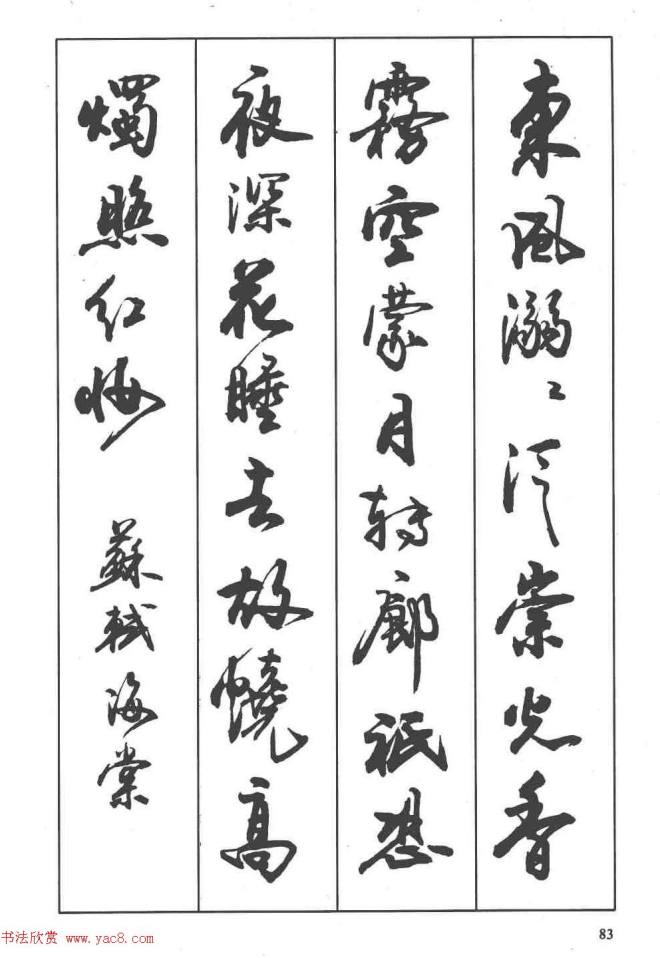 東風溺〻泛崇光香
霧空蒙月轉廊祗恐
夜深花睡去故燒高
燭照紅妝 蘇軾海棠
83
书法欣赏 www.yac8.com